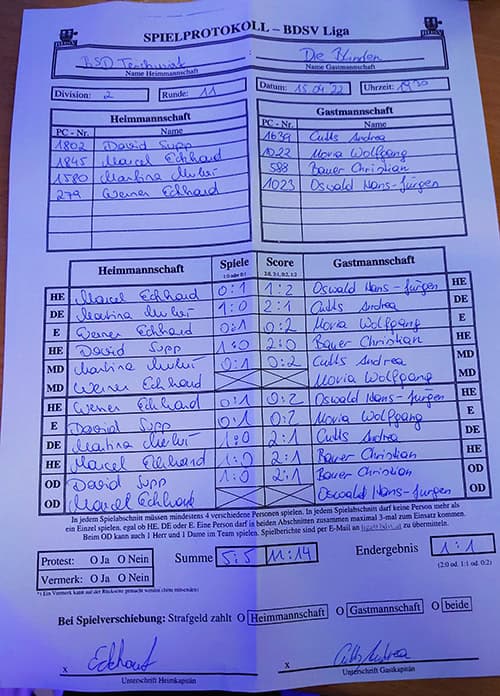 SPIELPROTOKOLL – BDSV Liga
BSD : Die Blinden
Name Heimmannschaft Name Gastmannschaft
Division: 2 Runde: 11 Datum: 15 04 22 Uhrzeit: 30
Heimmannschaft Gastmannschaft
PC - Nr. Name PC - Nr. Name
1802 David Supp 1639 Cutts Andrea
1845 Marcel Eckhard 1022 Moria Wolfgang
1580 Martina 588 Bauer Christian
279 Werner Eckhard 1023 Oswald Hans-Jürgen
Heimmannschaft Spiele Score Gastmannschaft
1:0 oder 0:1 2:0, 2:1, 0:2, 1:2
HE Marcel Eckhard 0:1 1:2 Oswald Hans-Jürgen HE
DE Martina 1:0 2:1 Cutts Andrea DE
E Werner Eckhard 0:1 0:2 Moria Wolfgang E
HE David Supp 1:0 2:0 Bauer Christian HE
MD Martina 0:1 0:2 Cutts Andrea MD
MD Werner Eckhard Moria Wolfgang MD
HE Werner Eckhard 0:1 0:2 Oswald Hans-Jürgen HE
E David Supp 0:1 0:2 Moria Wolfgang E
DE Martina 1:0 2:1 Cutts Andrea DE
HE Marcel Eckhard 1:0 2:1 Bauer Christian HE
OD David Supp 1:0 2:1 Bauer Christian OD
OD Marcel Eckhard Oswald Hans-Jürgen OD
In jedem Spielabschnitt müssen mindestens 4 verschiedene Personen spielen. In jedem Spielabschnitt darf keine Person mehr als
ein Einzel spielen, egal ob HE, DE oder E. Eine Person darf in beiden Abschnitten zusammen maximal 3-mal zum Einsatz kommen.
Beim OD kann auch 1 Herr und 1 Dame im Team spielen. Spielberichte sind per E-Mail an zu übermitteln.
Protest: O Ja O Nein Summe 5:5 11:14 Endergebnis 1:1
Vermerk: O Ja O Nein (2:0 od. 1:1 od. 0:2)
*) Ein Vermerk kann auf der Rückseite gemacht werden (bitte mitsenden)
Bei Spielverschiebung: Strafgeld zahlt O Heimmannschaft O Gastmannschaft O beide
x Eckhard x Cutts Andrea
Unterschrift Heimkapitän Unterschrift Gastkapitän